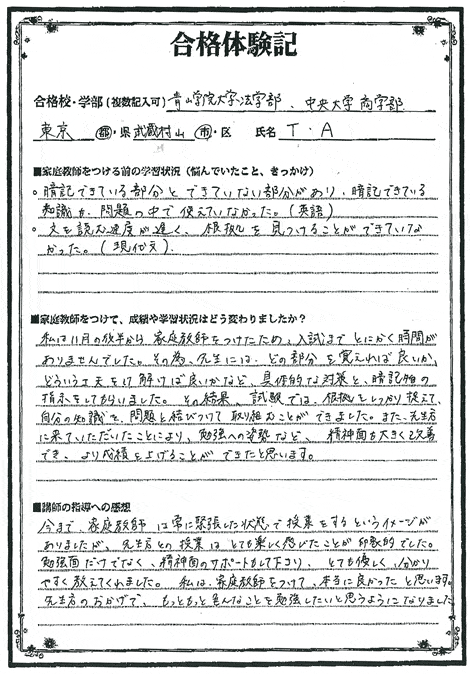 合格体験記
合格校・学部(複数記入可) 青山学院大学法学部、中央大学商学部
東京 都・県 武蔵村山 市・区 氏名 T・A
■家庭教師をつける前の学習状況(悩んでいたこと、きっかけ)
○暗記できている部分とできていない部分があり、暗記できている
知識が、問題の中で使えていなかった。(英語)
○文を読む速度が遅く、根拠を見つけることができていな
かった。(現代文)
■家庭教師をつけて、成績や学習状況はどう変わりましたか?
私は11月の後半から、家庭教師をつけたため、入試までとにかく時間が
ありませんでした。その為、先生には、どの部分を覚えれば良いか、
どういう文を解けば良いかなど、具体的な対策と、暗記の
指示をしてもらいました。その結果、試験では、根拠をしっかり捉えて、
自分の知識を、問題と結びつけて取り組むことができました。また、先生方
に来ていただいたことにより、勉強への姿勢など、精神面も大きく改善
でき、より成績を上げることができたと思います。
■講師の指導への感想
今まで、家庭教師は常に緊張した状態で授業をするというイメージが
ありましたが、先生方との授業はとても楽しく感じたことが印象的でした。
勉強面だけでなく、精神面のサポートもして下さり、とても優しく、分かり
やすく教えてくれました。私は、家庭教師をつけて、本当に良かったと思います。
先生方のおかげで、もっともっと色んなことを勉強したいと思うようになりました